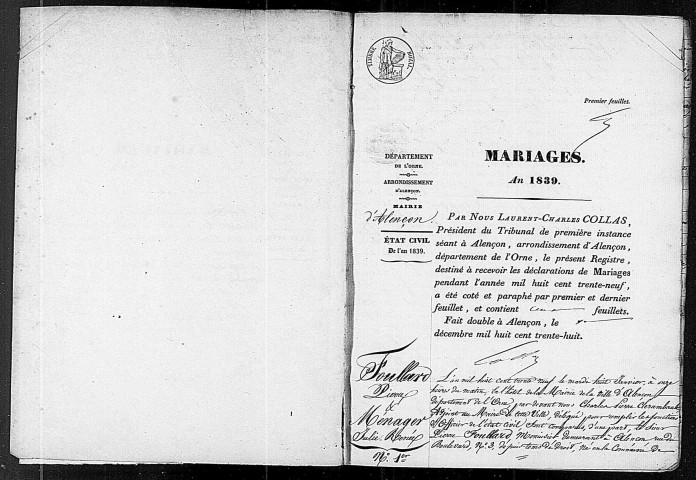 TIMBRE ROYAL
Premier feuillet.
MARIAGES.
An 1839.
DÉPARTEMENT
DE L'ORNE.
ARRONDISSEMENT
D'ALENÇON.
MAIRIE
d'Alençon
ÉTAT CIVIL
De l'an 1839.
PAR NOUS LAURENT-CHARLES COLLAS,
Président du Tribunal de première instance
séant à Alençon, arrondissement d'Alençon,
département de l'Orne, le présent Registre,
destiné à recevoir les déclarations de Mariages
pendant l'année mil huit cent trente-neuf,
a été coté et paraphé par premier et dernier
feuillet, et contient cent feuillets.
Fait double à Alençon, le
décembre mil huit cent trente-huit.
Foullard
Pierre
&
Ménager
Julie
N.º 1er
L'an mil huit cent trente neuf le mardi huit Janvier, à onze
heures du matin, en l'hôtel de la Mairie de la Ville d'Alençon
département de l'Orne, par devant nous Charles Pierre
Adjoint au Maire de cette Ville, délégué pour remplir les fonctions
d'Officier de l'état civil, sont comparus, d'une part, le Sieur
Pierre Foullard Menuisier demeurant à Alençon rue du
Boulevard, N.º 3, de droit, né en la Commune de